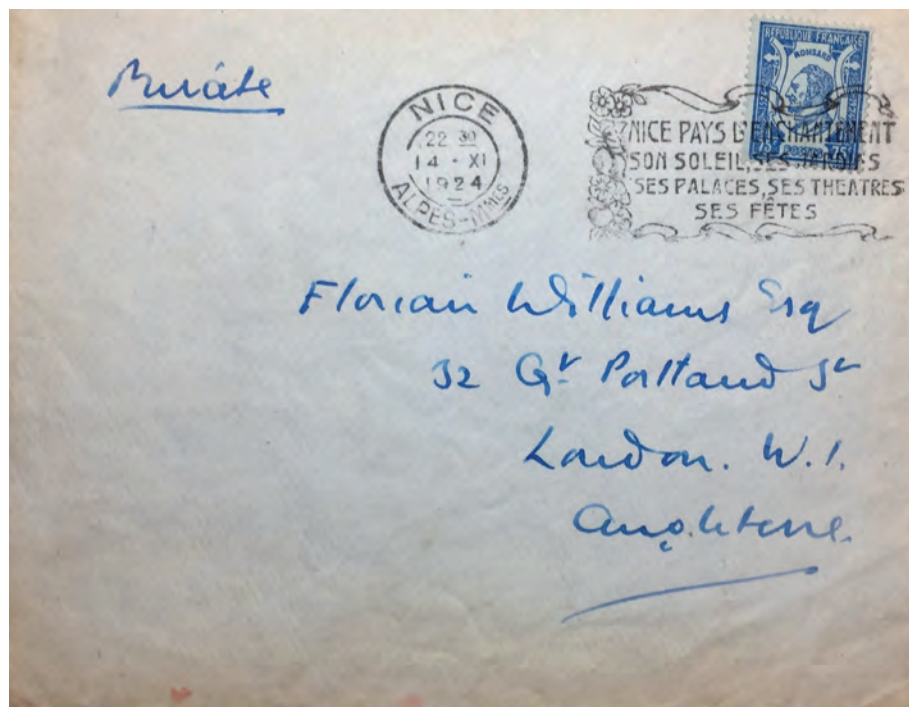 Private
NICE
22 30
14 - XI
1924
ALPES-Mmes
REPUBLIQUE FRANÇAISE
RONSARD
POSTES 75c
NICE PAYS D'ENCHANTEMENT
SON SOLEIL, SES JARDINS
SES PALACES, SES THEATRES
SES FÊTES
Florian Williams Esq
32 Gt Portland St
London. W.1.
Angleterre.